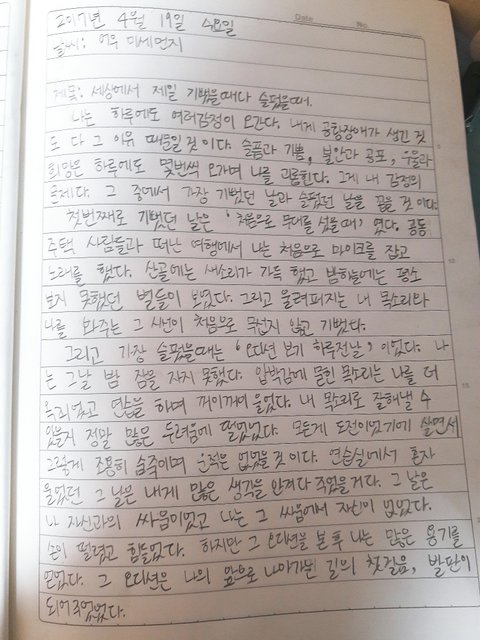 Date No.
2017년 4월 19일 수요일
날씨: 여우 미세먼지
제목: 세상에서 제일 기뻤을때다 슬펐을때.
나는 하루에도 여러감정이 오간다. 내게 공황장애가 생긴 것
도 다 그 이유 때문일 것이다. 슬픔과 기쁨, 불안과 공포, 우울과
희망은 하루에도 몇번씩 오가며 나를 괴롭힌다. 그게 내 감정의
문제다. 그 중에서 가장 기뻤던 날과 슬펐던 날을 꼽을 것 이다.
첫번째로 기뻤던 날은 '처음으로 무대를 섰을 때' 였다. 공동
주택 사람들과 떠난 여행에서 나는 처음으로 마이크를 잡고
노래를 했다. 산골에는 새소리가 가득 했고 밤하늘에는 평소
보지 못했던 별들이 보였다. 그리고 울려퍼지는 내 목소리와
나를 봐주는 그 시선이 처음으로 무섭지 않고 기뻤다.
그리고 가장 슬펐을때는 '오디션 보기 하루전날' 이었다. 나
는 그날 밤 잠을 자지 못했다. 압박감에 물린 목소리는 나를 더
욱 죄었고 연습을 하며 꺼이꺼이 울었다. 내 목소리로 잘해낼 수
있을지 정말 많은 두려움에 떨었었다. 모든게 도전이었기에 살면서
그렇게 조용히 숨죽이며 운적은 없었을 것이다. 연습실에서 혼자
울었던 그 날은 내게 많은 생각을 안겨다 주었을거다. 그 날은
나 자신과의 싸움이었고 나는 그 싸움에서 자신이 없었다.
손이 떨렸고 힘들었다. 하지만 그 오디션을 본 후 나는 많은 용기를
얻었다. 그 오디션은 나의 앞으로 나아가는 길의 첫걸음, 발판이
되어주었었다.